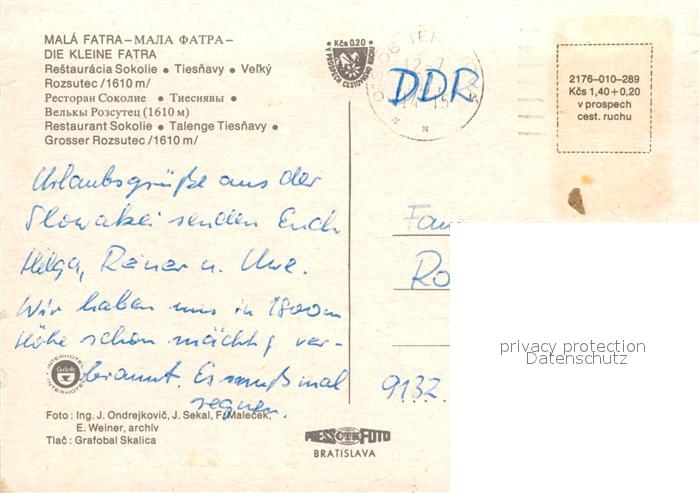 MALÁ FATRA – МАЛА ФАТРА –
DIE KLEINE FATRA
Reštaurácia Sokolie • Tiesňavy • Veľký
Rozsutec /1610 m/
Ресторан Соколие • Тиеснявы •
Велькы Розсутец (1610 м)
Restaurant Sokolie • Talenge Tiesňavy •
Grosser Rozsutec /1610 m/
Kčs 0.20
V PROSPECH CESTOVNÉHO RUCHU
DDR
2176-010-289
Kčs 1,40+0,20
v prospech
cest. ruchu
Urlaubsgrüße aus der
Slowakei senden Euch
Helga, Reiner u. Uwe.
Wir haben uns in 1800m
Höhe schon mächtig ver-
brannt. Es muß mal
regnen.
Fam
Ro
9132
privacy protection
Datenschutz
INTERHOTEL
INTERHOTEL
Foto: Ing. J. Ondrejkovič, J. Sekal, F. Maleček,
E. Weiner, archív
Tlač: Grafobal Skalica
PRESSFOTO
BRATISLAVA